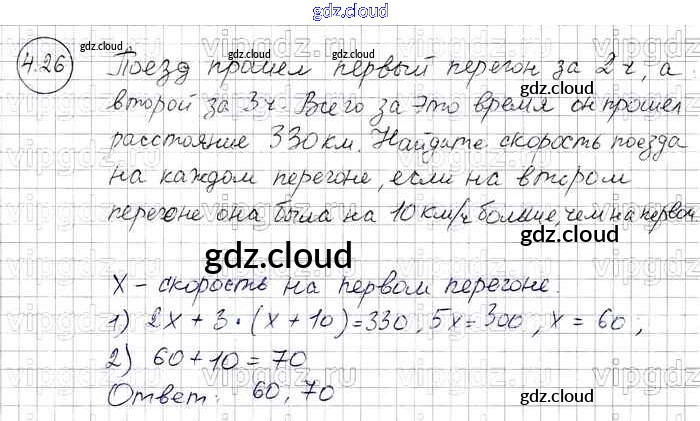 gdz.cloud
4.26 Поезд прошел первый перегон за 2 ч, а
второй за 3 ч. Всего за это время он прошел
расстояние 330 км. Найдите скорость поезда
на каждом перегоне, если на втором
перегоне она была на 10 км/ч больше, чем на первом
X – скорость на первом перегоне.
1) 2x + 3 · (x + 10) = 330, 5x = 300, x = 60,
2) 60 + 10 = 70
Ответ: 60, 70
gdz.cloud
gdz.cloud
gdz.cloud
gdz.cloud
gdz.cloud
gdz.cloud
gdz.cloud
gdz.cloud
vipgdz.ru
vipgdz.ru